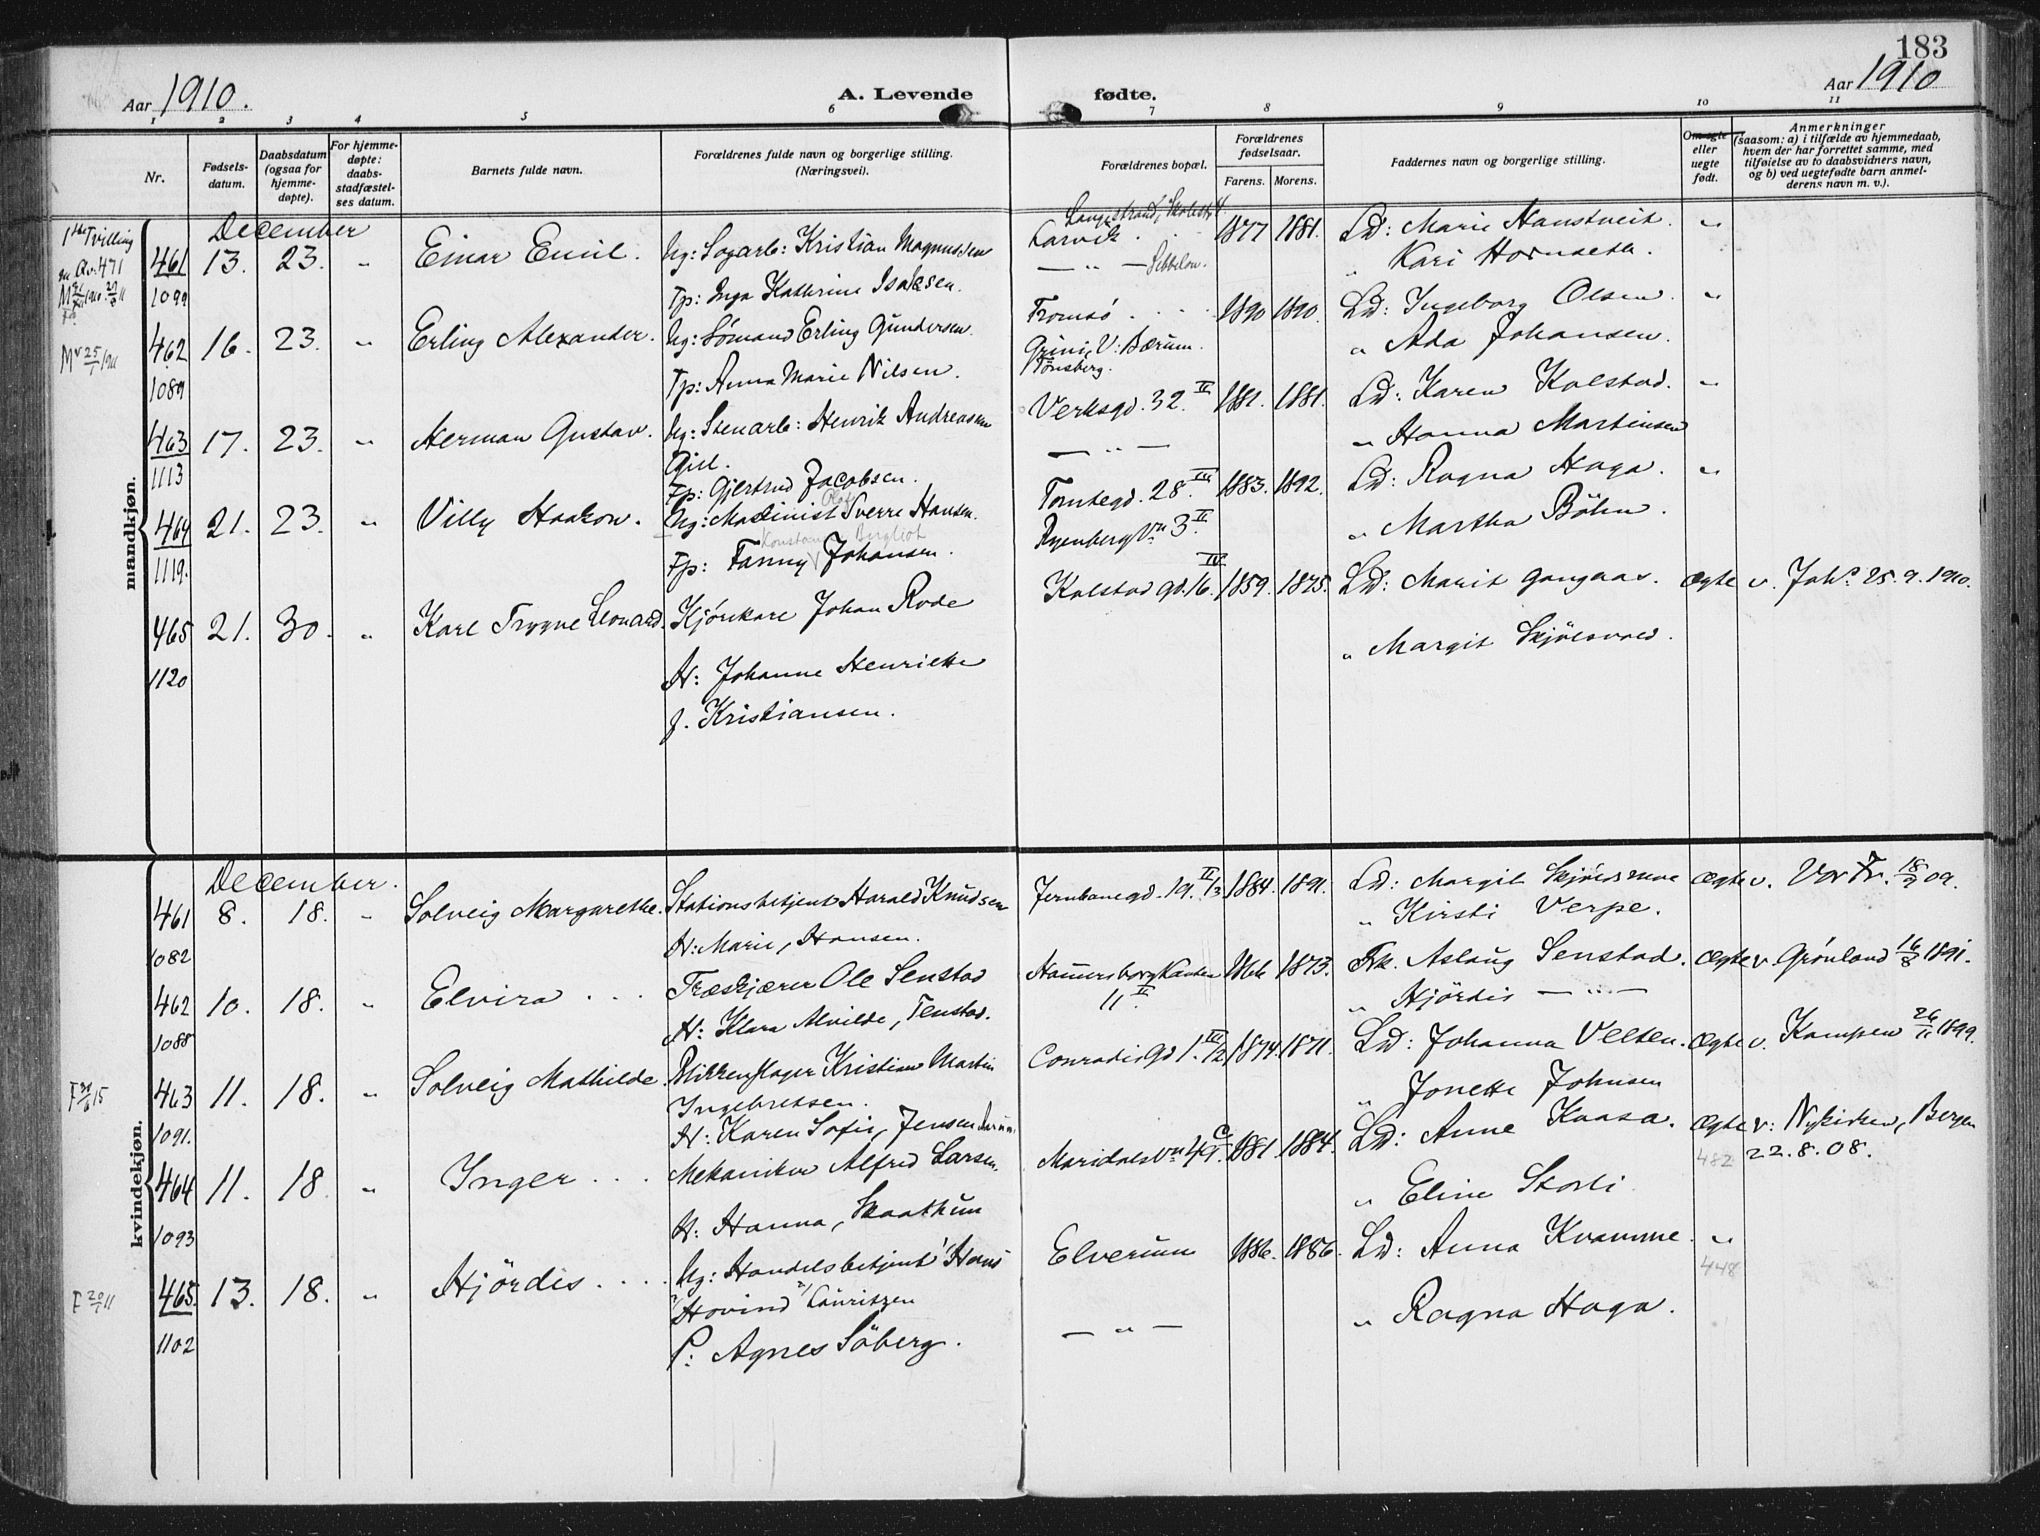 183
Aar 1910.
A. Levende fødte.
Aar 1910
1 2 3 4 5 6 7 8 9 10 11
Nr.
Fødsels-
datum.
Daabsdatum
(ogsaa for
hjemme-
døpte).
For hjemme-
døpte:
daabs-
stadfæstel-
ses datum.
Barnets fulde navn.
Forældrenes fulde navn og borgerlige stilling.
(Næringsvei).
Forældrenes bopæl.
Forældrenes
fødselsaar.
Farens. Morens.
Faddernes navn og borgerlige stilling.
Om egte
eller
uegte
født.
Anmerkninger
(saasom: a) i tilfælde av hjemmedaab,
hvem der har forrettet samme, med
tilføielse av to daabsvidners navn,
og b) ved uegtefødte barn anmel-
derens navn m. v.).
mandkjøn.
December
1ste Tvilling
461 13. 23. " Einar Emil. Ug: Sagarb: Kristian Magnussen Larvik. 1877 1881. Ld: Marie Hanstveit. "
1099 Fp: Inga Kathrine Isaksen. — " — " Kari Hornseth.
462 16. 23. " Erling Alexander. Ug: Sømand Erling Gundersen. Tromsö 1890 1890. Ld: Ingeborg Olsen. "
1089 Fp: Anna Marie Nilsen. Grini, V: Bærum. Tönsberg. " Ada Johansen.
463 17. 23. " Herman Gustav. Ug: Stenarb: Henrik Andreassen Verksgd. 32. II 1881. 1881. Ld: Karen Kolstad. "
1113 Fp: Gjertrud Jacobsen. — " — " Hanna Martinsen
464 21. 23. " Villy Haakon. Ug: Maskinist Sverre Hansen. Tomtegd. 28. III 1883. 1892. Ld: Ragna Haga. "
1119. Fp: Fanny Johansen. Ryenbergvn 3. II " Martha Böhn.
465 21. 30. " Karl Trygve Leonard. Kjörekare Johan Rode Kolstad gd. 16. IV 1859. 1875. Ld: Marit Gangaas. Ægte v. Jak. 25.9.1910.
1120 H: Johanne Henriette " Margit Skjölsvold.
f. Kristiansen.
kvindekjøn.
December.
461 8. 18. " Solveig Margarethe. Stationsbetjent Harald Knudsen Jernbanegd. 19. II/3 1884. 1891. Ld: Margit Ægte v. Vor Fr. 18/9 09.
1082 H: Marie, Hansen. " Kirsti Verpe.
462 10. 18. " Elvira Træskjærer Ole Senstad 1873. Frk. Aslaug Senstad. Ægte v. Grönland 16/8 1891.
1088 H: Klara Alvilde, Tenstad. 11 II " Hjördis — " —
463 11. 18. " Solveig Mathilde. Blikkenslager Kristian Martin Conradisgd 1. III/2 1874. 1871. Ld: Johanna Velten. Ægte v. Kampen 26/11 1899.
1091. Ingebretsen. " Jonette Johnsen
H: Karen Sofie, Jensen
464 11. 18 " Inger Mekaniker Alfred Larsen. Maridalsvn 49. C 1881. 1884. Ld: Anne Kaasa. Ægte v: Nykirken, Bergen
482 22.8.08.
1093 H: Hanna, Skaathun " Eline Storli
465. 13. 18. " Hjördis Ug: Handelsbetjent Hans Elverum 1886. 1886. Ld: Anna Kvamme. "
448
F 20/1 11 Hovind Lauritzen
1102 P: Agnes Söberg. — " — " Ragna Haga.